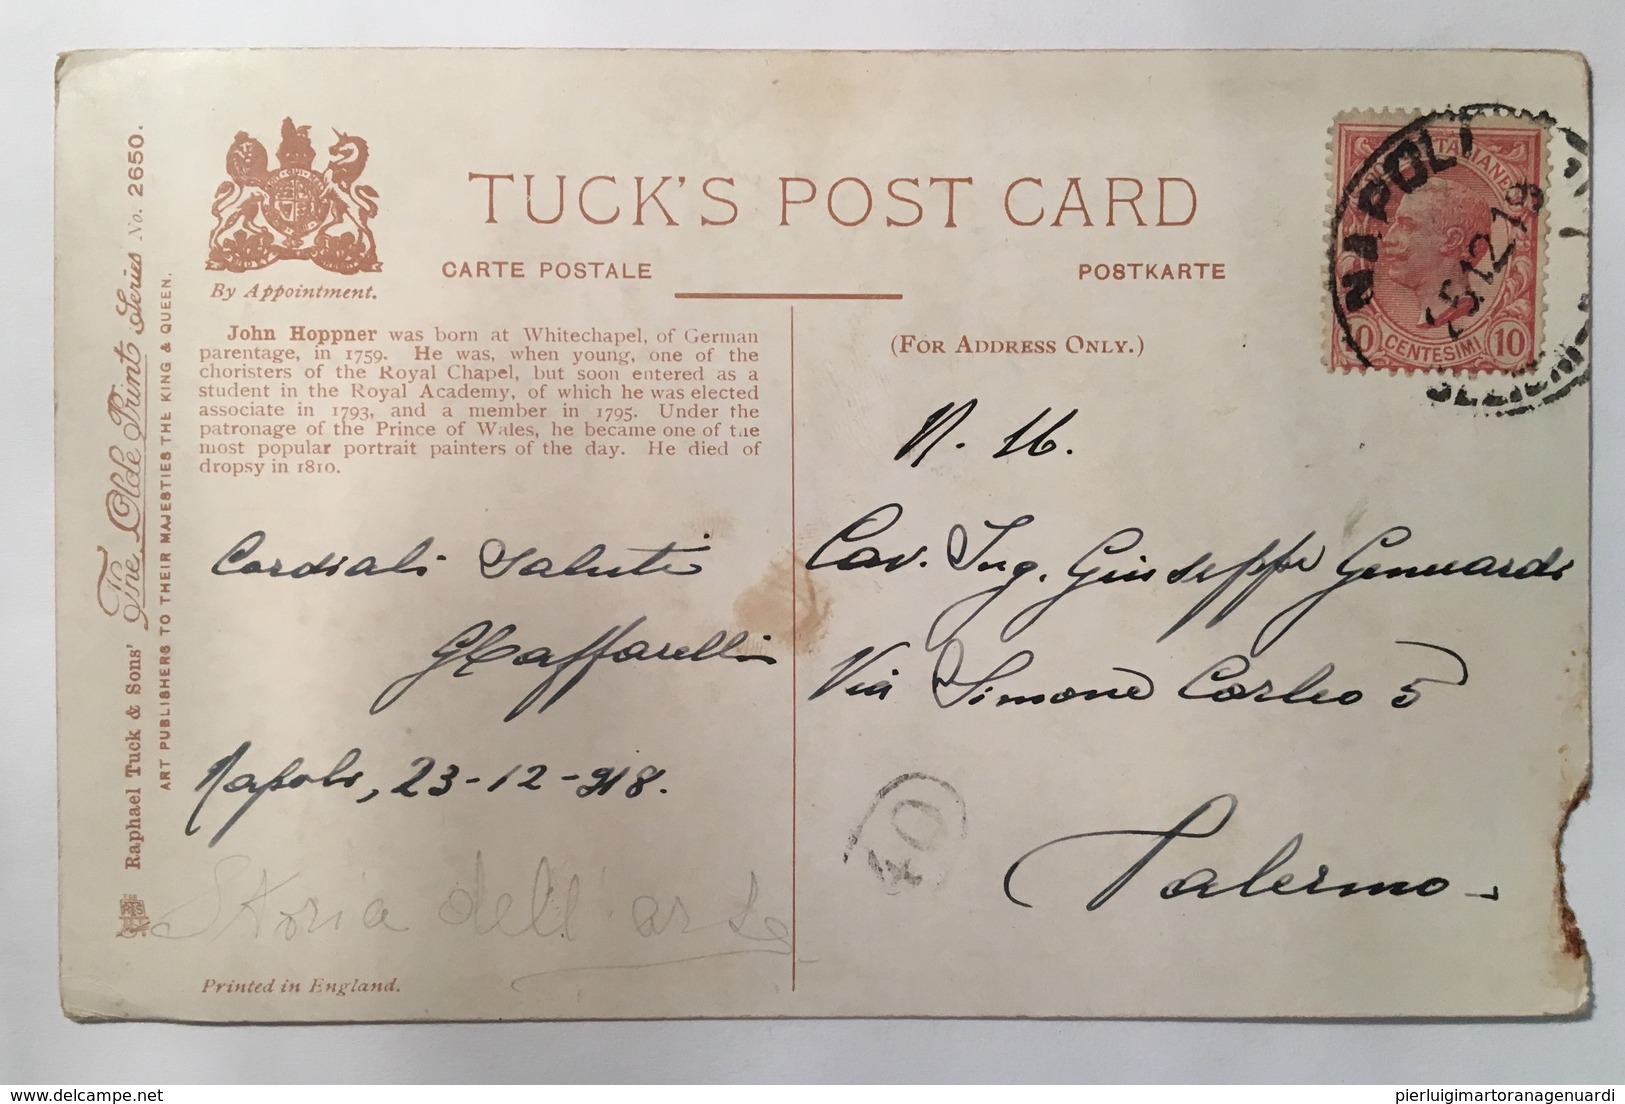 TUCK'S POST CARD
CARTE POSTALE
POSTKARTE
By Appointment.
(FOR ADDRESS ONLY.)
John Hoppner was born at Whitechapel, of German
parentage, in 1759. He was, when young, one of the
choristers of the Royal Chapel, but soon entered as a
student in the Royal Academy, of which he was elected
associate in 1793, and a member in 1795. Under the
patronage of the Prince of Wales, he became one of the
most popular portrait painters of the day. He died of
dropsy in 1810.
Raphael Tuck & Sons' The Olde Print Series No. 2650.
ART PUBLISHERS TO THEIR MAJESTIES THE KING & QUEEN.
Cordiali Saluti
GCaffarelli
Napoli, 23-12-918.
Storia dell'arte
Printed in England.
N. H.
Cav. Ing. Giuseppe Genuardi
Via Simone Corleo 5
Palermo
40
NAPOLI
12.18
10 CENTESIMI 10
delcampe.net
pierluigimartoranagenuardi